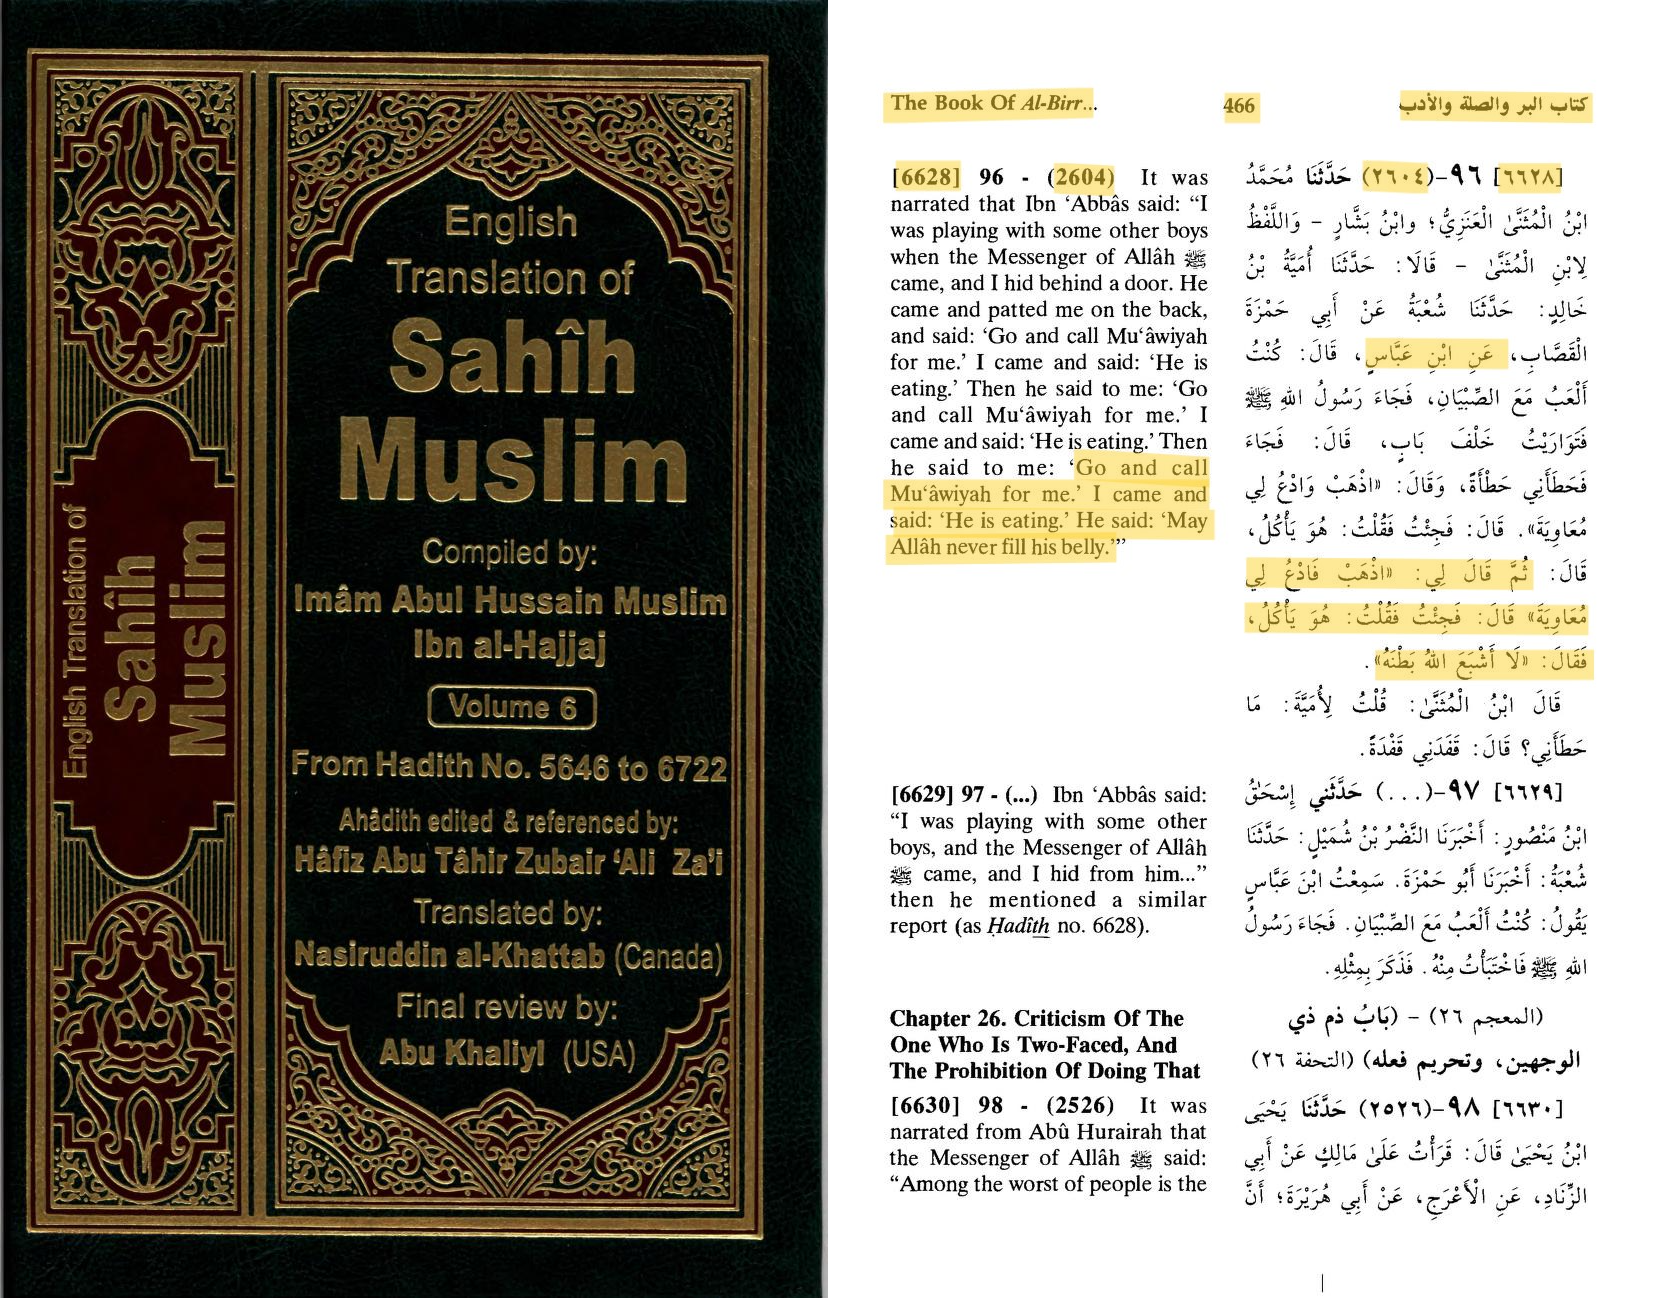 English Translation of
Sahîh
Muslim
English
Translation of
Sahîh
Muslim
Compiled by:
Imâm Abul Hussain Muslim
Ibn al-Hajjaj
Volume 6
From Hadith No. 5646 to 6722
Ahâdith edited & referenced by:
Hâfiz Abu Tâhir Zubair ‘Ali Za’i
Translated by:
Nasiruddin al-Khattab (Canada)
Final review by:
Abu Khaliyl (USA)
The Book Of Al-Birr...
466
كتاب البر والصلة والأدب
[6628] 96 - (2604) It was
narrated that Ibn ‘Abbâs said: “I
was playing with some other boys
when the Messenger of Allâh ﷺ
came, and I hid behind a door. He
came and patted me on the back,
and said: ‘Go and call Mu‘âwiyah
for me.’ I came and said: ‘He is
eating.’ Then he said to me: ‘Go
and call Mu‘âwiyah for me.’ I
came and said: ‘He is eating.’ Then
he said to me: ‘Go and call
Mu‘âwiyah for me.’ I came and
said: ‘He is eating.’ He said: ‘May
Allâh never fill his belly.’”
[6629] 97 - (...) Ibn ‘Abbâs said:
“I was playing with some other
boys, and the Messenger of Allâh
ﷺ came, and I hid from him...”
then he mentioned a similar
report (as Hadîth no. 6628).
Chapter 26. Criticism Of The
One Who Is Two-Faced, And
The Prohibition Of Doing That
[6630] 98 - (2526) It was
narrated from Abû Hurairah that
the Messenger of Allâh ﷺ said:
“Among the worst of people is the
[٦٦٢٨] ٩٦-(٢٦٠٤) حَدَّثَنَا مُحَمَّدُ
ابْنُ الْمُثَنَّىٰ الْعَنَزِيُّ؛ وابْنُ بَشَّارٍ - وَاللَّفْظُ
لِابْنِ الْمُثَنَّىٰ - قَالَا: حَدَّثَنَا أُمَيَّةُ بْنُ
خَالِدٍ: حَدَّثَنَا شُعْبَةُ عَنْ أَبِي حَمْزَةَ
الْقَصَّابِ، عَنِ ابْنِ عَبَّاسٍ، قَالَ: كُنْتُ
أَلْعَبُ مَعَ الصِّبْيَانِ، فَجَاءَ رَسُولُ اللهِ ﷺ
فَتَوَارَيْتُ خَلْفَ بَابٍ، قَالَ: فَجَاءَ
فَحَطَأَنِي حَطْأَةً، وَقَالَ: «اذْهَبْ وَادْعُ لِي
مُعَاوِيَةَ». قَالَ: فَجِئْتُ فَقُلْتُ: هُوَ يَأْكُلُ،
قَالَ: ثُمَّ قَالَ لِي: «اذْهَبْ فَادْعُ لِي
مُعَاوِيَةَ» قَالَ: فَجِئْتُ فَقُلْتُ: هُوَ يَأْكُلُ،
فَقَالَ: «لَا أَشْبَعَ اللهُ بَطْنَهُ».
قَالَ ابْنُ الْمُثَنَّىٰ: قُلْتُ لِأُمَيَّةَ: مَا
حَطَأَنِي؟ قَالَ: قَفَدَنِي قَفْدَةً.
[٦٦٢٩] ٩٧-(...) حَدَّثَنِي إِسْحَٰقُ
ابْنُ مَنْصُورٍ: أَخْبَرَنَا النَّضْرُ بْنُ شُمَيْلٍ: حَدَّثَنَا
شُعْبَةُ: أَخْبَرَنَا أَبُو حَمْزَةَ. سَمِعْتُ ابْنَ عَبَّاسٍ
يَقُولُ: كُنْتُ أَلْعَبُ مَعَ الصِّبْيَانِ. فَجَاءَ رَسُولُ
اللهِ ﷺ فَاخْتَبَأْتُ مِنْهُ. فَذَكَرَ بِمِثْلِهِ.
(المعجم ٢٦) - (بَابُ ذم ذي
الوجهين، وتحريم فعله) (التحفة ٢٦)
[٦٦٣٠] ٩٨-(٢٥٢٦) حَدَّثَنَا يَحْيَى
ابْنُ يَحْيَىٰ قَالَ: قَرَأْتُ عَلَىٰ مَالِكٍ عَنْ أَبِي
الزِّنَادِ، عَنِ الْأَعْرَجِ، عَنْ أَبِي هُرَيْرَةَ؛ أَنَّ